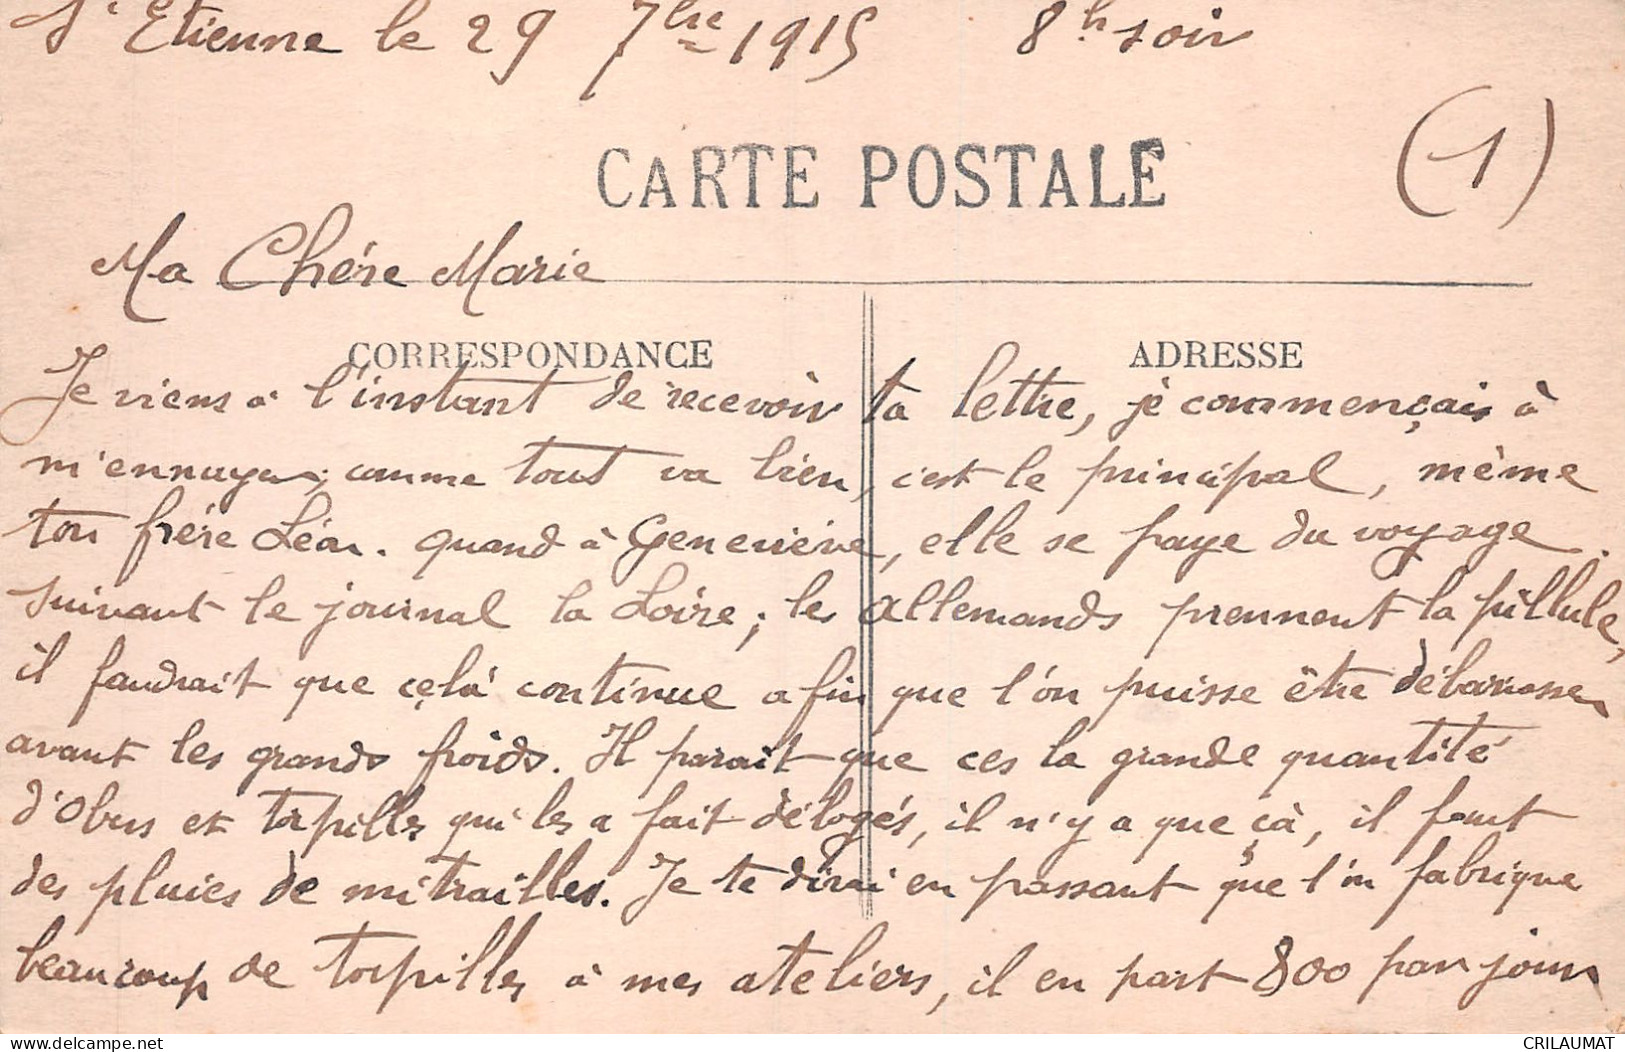 St Etienne le 29 7bre 1915 8h soir
(1)
CARTE POSTALE
Ma Chére Marie
CORRESPONDANCE ADRESSE
Je viens a l'instant de recevoir ta lettre, je commençais à
m'ennuyer; comme tout va bien, c'est le principal, même
ton frére Léon. quand à Geneviève, elle se paye du voyage.
suivant le journal la Loire; les allemands prennent la pillule,
il faudrait que çelà continue afin que l'on puisse être débarrasser
avant les grands froids. Il parait que ces la grande quantité
d'Obus et torpilles qui les a fait délogés, il n'y a que çà, il faut
des pluies de mitrailles. Je te dirai en passant que l'on fabrique
beaucoup de torpilles à mes ateliers, il en part 800 par jour
www.delcampe.net CRILAUMAT